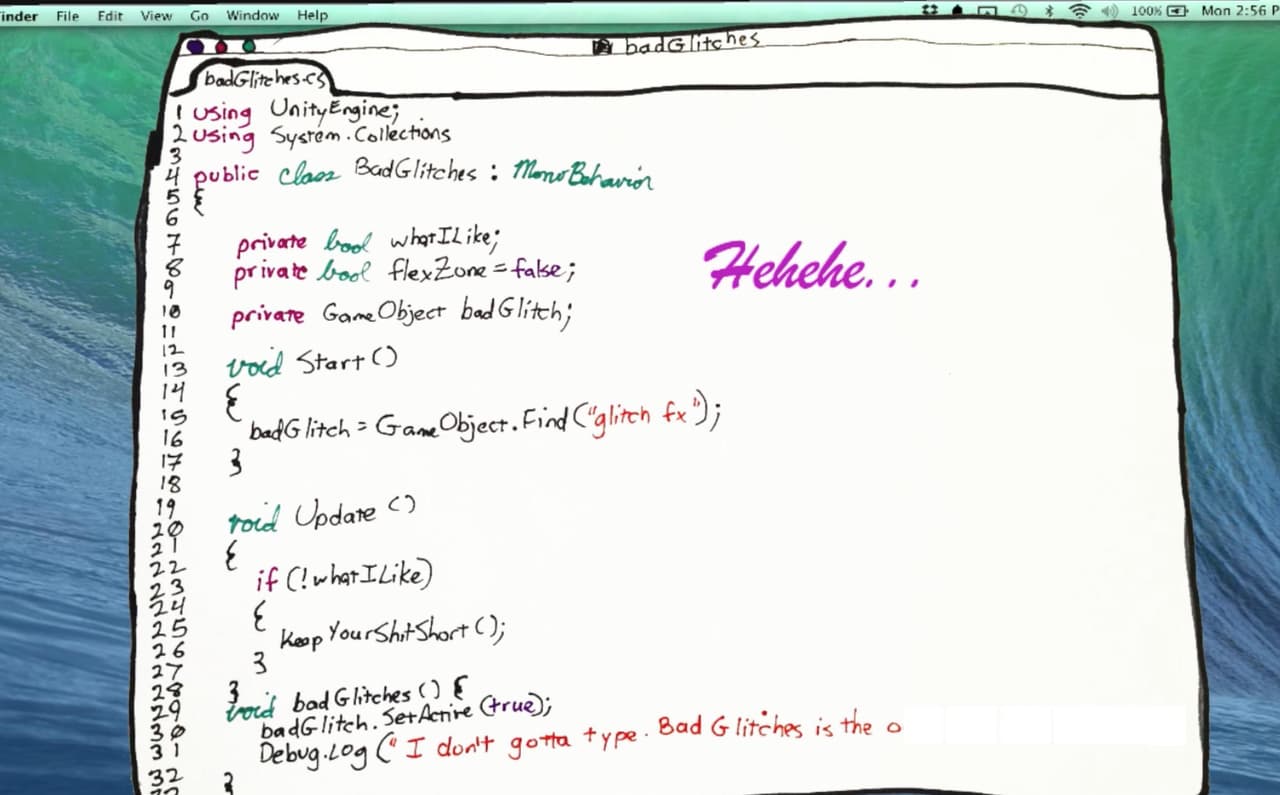 inder File Edit View Go Window Help 100% Mon 2:56 P
badGlitches
badGlitches.cs
1 using UnityEngine;
2 using System.Collections
3
4 public class BadGlitches : MonoBehavior
5 {
6
7 private bool whatILike;
8 private bool flexZone = false;
Hehehe...
9
10 private GameObject badGlitch;
11
12
13 void Start ()
14 {
15 badGlitch = GameObject.Find("glitch fx");
16
17 }
18
19
20 void Update ()
21 {
22
23 if (!whatILike)
24 {
25 KeepYourShitShort();
26
27 }
28 }
29 void badGlitches () {
30 badGlitch.SetActive (true);
31 Debug.Log (" I don't gotta type. Bad Glitches is the o
32 }